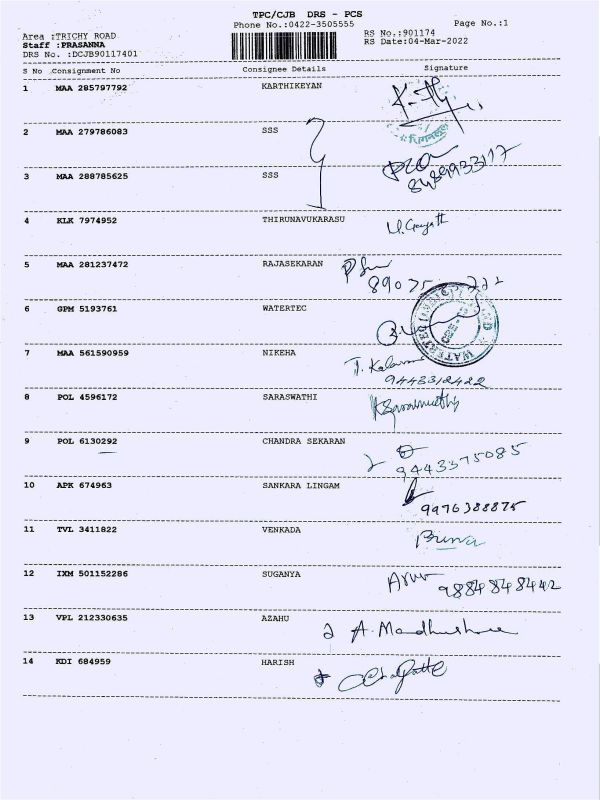 TPC/CJB DRS - PCS
Phone No.:0422-3505555
Page No.:1
Area :TRICHY ROAD
Staff :PRASANNA
DRS No. :DCJB90117401
RS No.:901174
RS Date:04-Mar-2022
S No Consignment No Consignee Details Signature
1 MAA 285797792 KARTHIKEYAN
2 MAA 279786083 SSS
3 MAA 288785625 SSS
8489933117
4 KLK 7974952 THIRUNAVUKARASU
5 MAA 281237472 RAJASEKARAN
6 GPM 5193761 WATERTEC
7 MAA 561590959 NIKEHA
9443312422
8 POL 4596172 SARASWATHI
9 POL 6130292 CHANDRA SEKARAN
9443375085
10 APK 674963 SANKARA LINGAM
9976388875
11 TVL 3411822 VENKADA
12 IXM 501152286 SUGANYA
9884848442
13 VPL 212330635 AZAHU
14 KDI 684959 HARISH